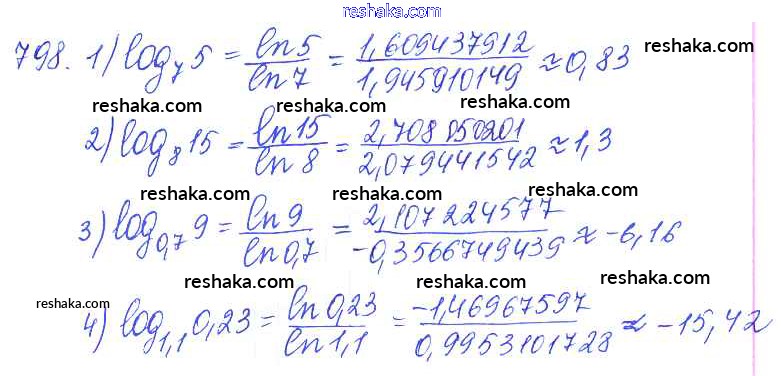 reshaka.com
798. 1) log₇ 5 = ln 5 / ln 7 = 1,609437912 / 1,945910149 ≈ 0,83
reshaka.com
reshaka.com reshaka.com reshaka.com
2) log₈ 15 = ln 15 / ln 8 = 2,708050201 / 2,079441542 ≈ 1,3
reshaka.com reshaka.com reshaka.com
3) log₀,₇ 9 = ln 9 / ln 0,7 = 2,107224577 / -0,3566749439 ≈ -6,16
reshaka.com reshaka.com reshaka.com
4) log₁,₁ 0,23 = ln 0,23 / ln 1,1 = -1,46967597 / 0,9953101728 ≈ -15,42
reshaka.com reshaka.com reshaka.com